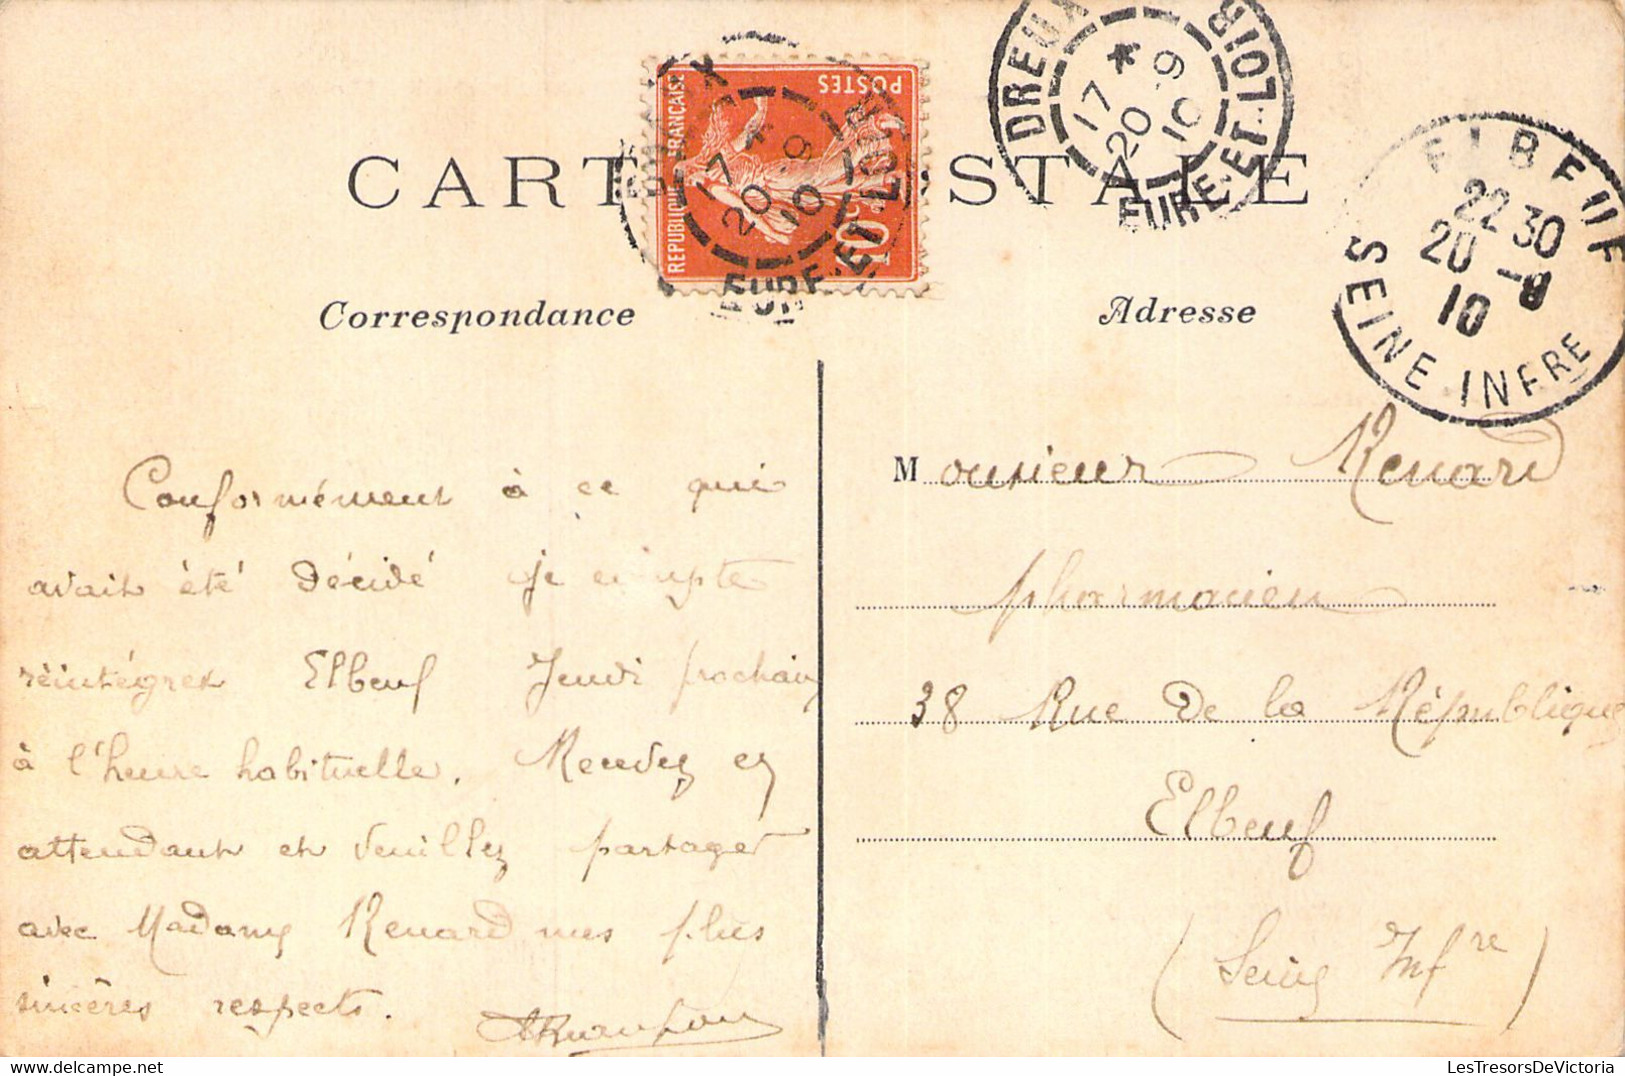 CARTE POSTALE
REPUBLIQUE FRANÇAISE
POSTES
10
DREUX
17 * 20 -9 10
EURE-ET-LOIR
DREUX
17 * 20 -9 10
EURE-ET-LOIR
ELBEUF
22 30
20 -9
10
SEINE INFRE
Correspondance
Adresse
Conformément à ce qui
avait été décidé je compte
réintégrer Elbeuf Jeudi prochain
à l'heure habituelle. Rendez en
attendant et veuillez partager
avec Madame Renard mes plus
sincères respects.
Monsieur Renard
pharmacien
38 Rue de la République
Elbeuf
(Seine Infre)
LesTresorsDeVictoria.com